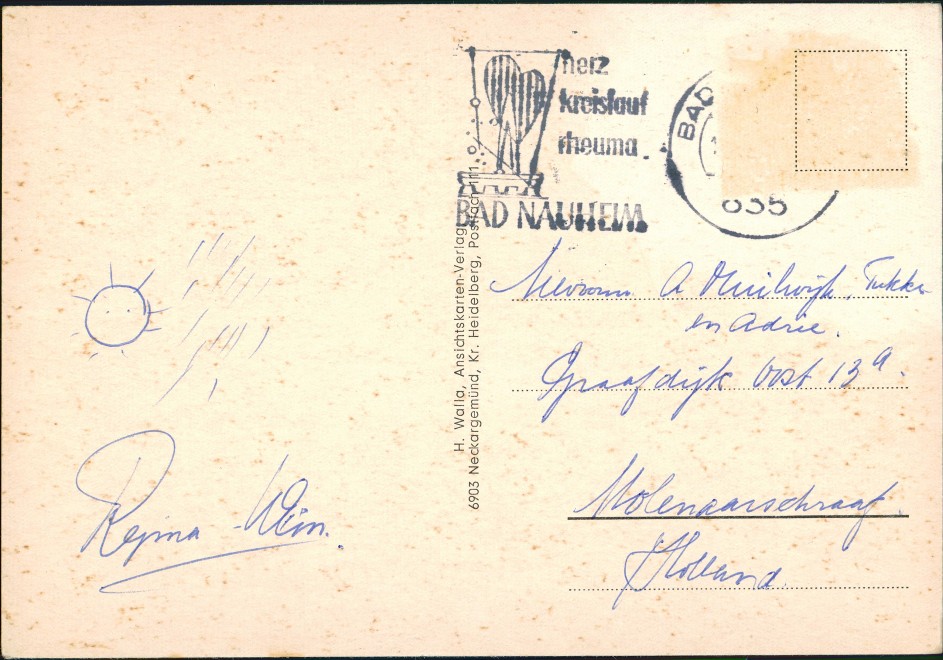 herz
kreislauf
rheuma.
BAD NAUHEIM
BAD
635
H. Walla, Ansichtskarten-Verlag
6903 Neckargemünd, Kr. Heidelberg, Postfach 111
A
en Adrie.
Graafdijk Oost 13a.
Molenaarsgraaf.
Holland
Regina - Wim.